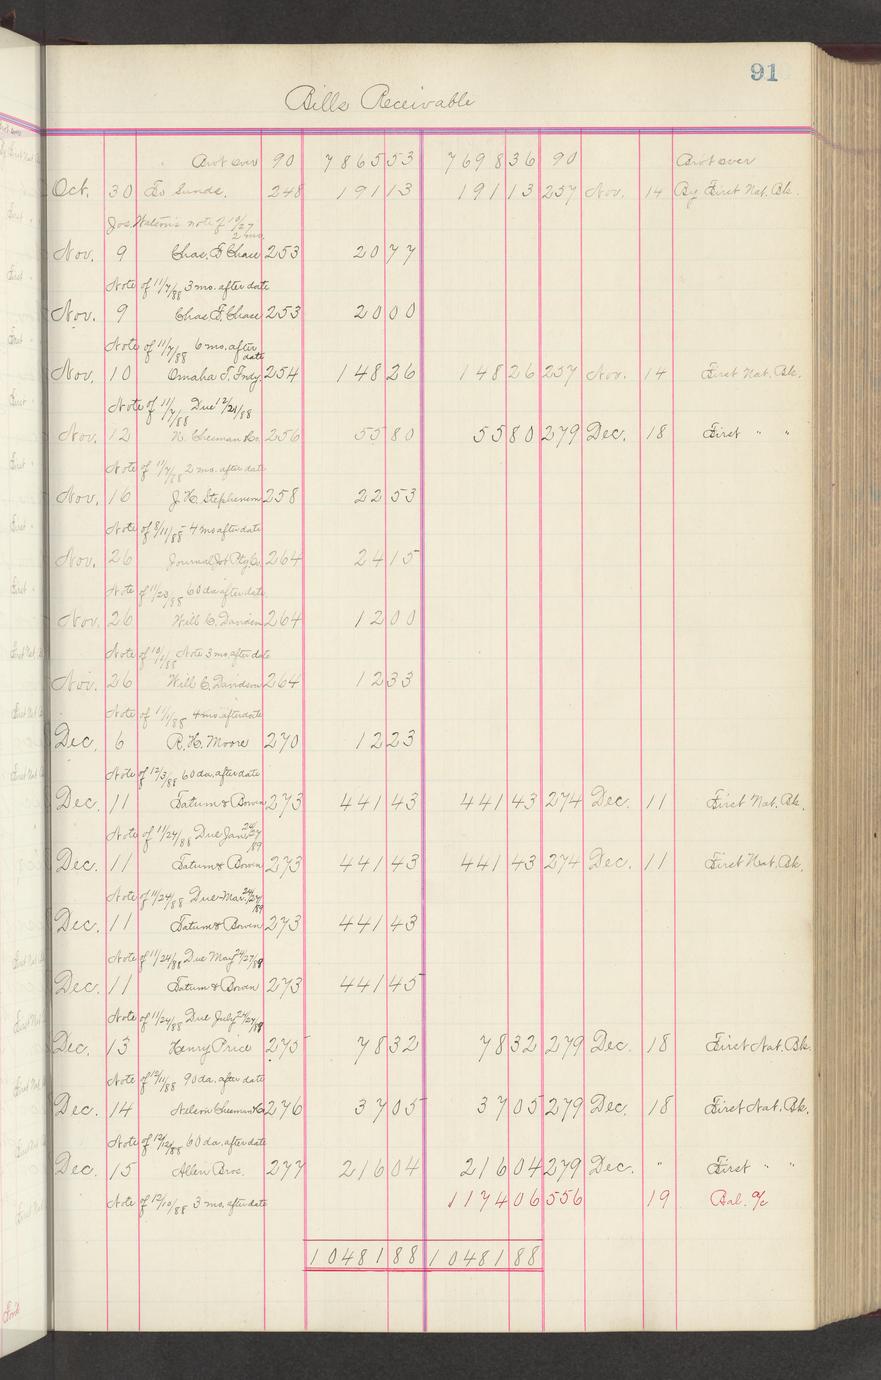 91
Bills Receivable
Brot over 90 7865 53 7698 36 90 Brot over
Oct. 30 To Sunds. 248 191 13 191 13 257 Nov. 14 By First Nat. Bk.
Jos. Watson's note of 10/27 2 mo.
Nov. 9 Chas. F. Chase 253 20 77
Note of 11/7/88 3 mo. after date
Nov. 9 Chas. F. Chase 253 20 00
Note of 11/7/88 6 mo. after date
Nov. 10 Omaha T. Fndy. 254 148 26 148 26 257 Nov. 14 First Nat. Bk.
Note of 11/7/88 Due 12/21/88
Nov. 12 N. Chesman Co. 256 55 80 55 80 279 Dec. 18 First " "
Note of 11/7/88 2 mo. after date
Nov. 16 J. H. Stephenson 258 22 53
Note of 8/11/85 4 mo after date
Nov. 26 Journal Job Ptg. Co. 264 24 15
Note of 11/20/88 60 da after date.
Nov. 26 Will C. Davidson 264 12 00
Note of 10/1/88 Note 3 mo. after date
Nov. 26 Will C. Davidson 264 12 33
Note of 11/1/88 4 mo after date
Dec. 6 R. H. Moore 270 12 23
Note of 12/3/88 60 da. after date
Dec. 11 Tatum & Bowen 273 441 43 441 43 274 Dec. 11 First Nat. Bk.
Note of 11/24/88 Due Jan. 24/27/89
Dec. 11 Tatum & Bowen 273 441 43 441 43 274 Dec. 11 First Nat. Bk.
Note of 11/24/88 Due Mar. 24/27/89
Dec. 11 Tatum & Bowen 273 441 43
Note of 11/24/88 Due May 24/27/89
Dec. 11 Tatum & Bowen 273 441 45
Note of 11/24/88 Due July 24/27/89
Dec. 13 Henry Price 275 78 32 78 32 279 Dec. 18 First Nat. Bk.
Note of 12/11/88 90 da. after date
Dec. 14 Nelson Chesman & Co 276 37 05 37 05 279 Dec. 18 First Nat. Bk.
Note of 12/12/88 60 da. after date
Dec. 15 Allen Bros. 277 216 04 216 04 279 Dec. " First " "
Note of 12/10/88 3 mo. after date 1174 06 556 19 Bal. a/c
10481 88 10481 88